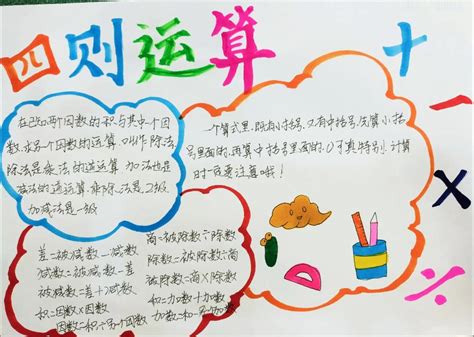 四则运算
＋
－
×
÷
在已知两个因数的积与其中个因
数，求另个因数的运算，叫作除法
除法是乘法的逆运算 加法也是
减法的逆运算 乘除法是2级
加减法是一级
一个算式里，既有小括号，又有中括号，先算小括
号里面的，再算中括号里面的，0可真特别！计算
时一定要注意哦！
差=被减数-减数
减数=被减数-差
被减数=差+减数
积=因数×因数
因数=积÷另个因数
商=被除数÷除数
除数=被除数÷商
被除数=商×除数
和=加数+加数
加数=和-另个加数